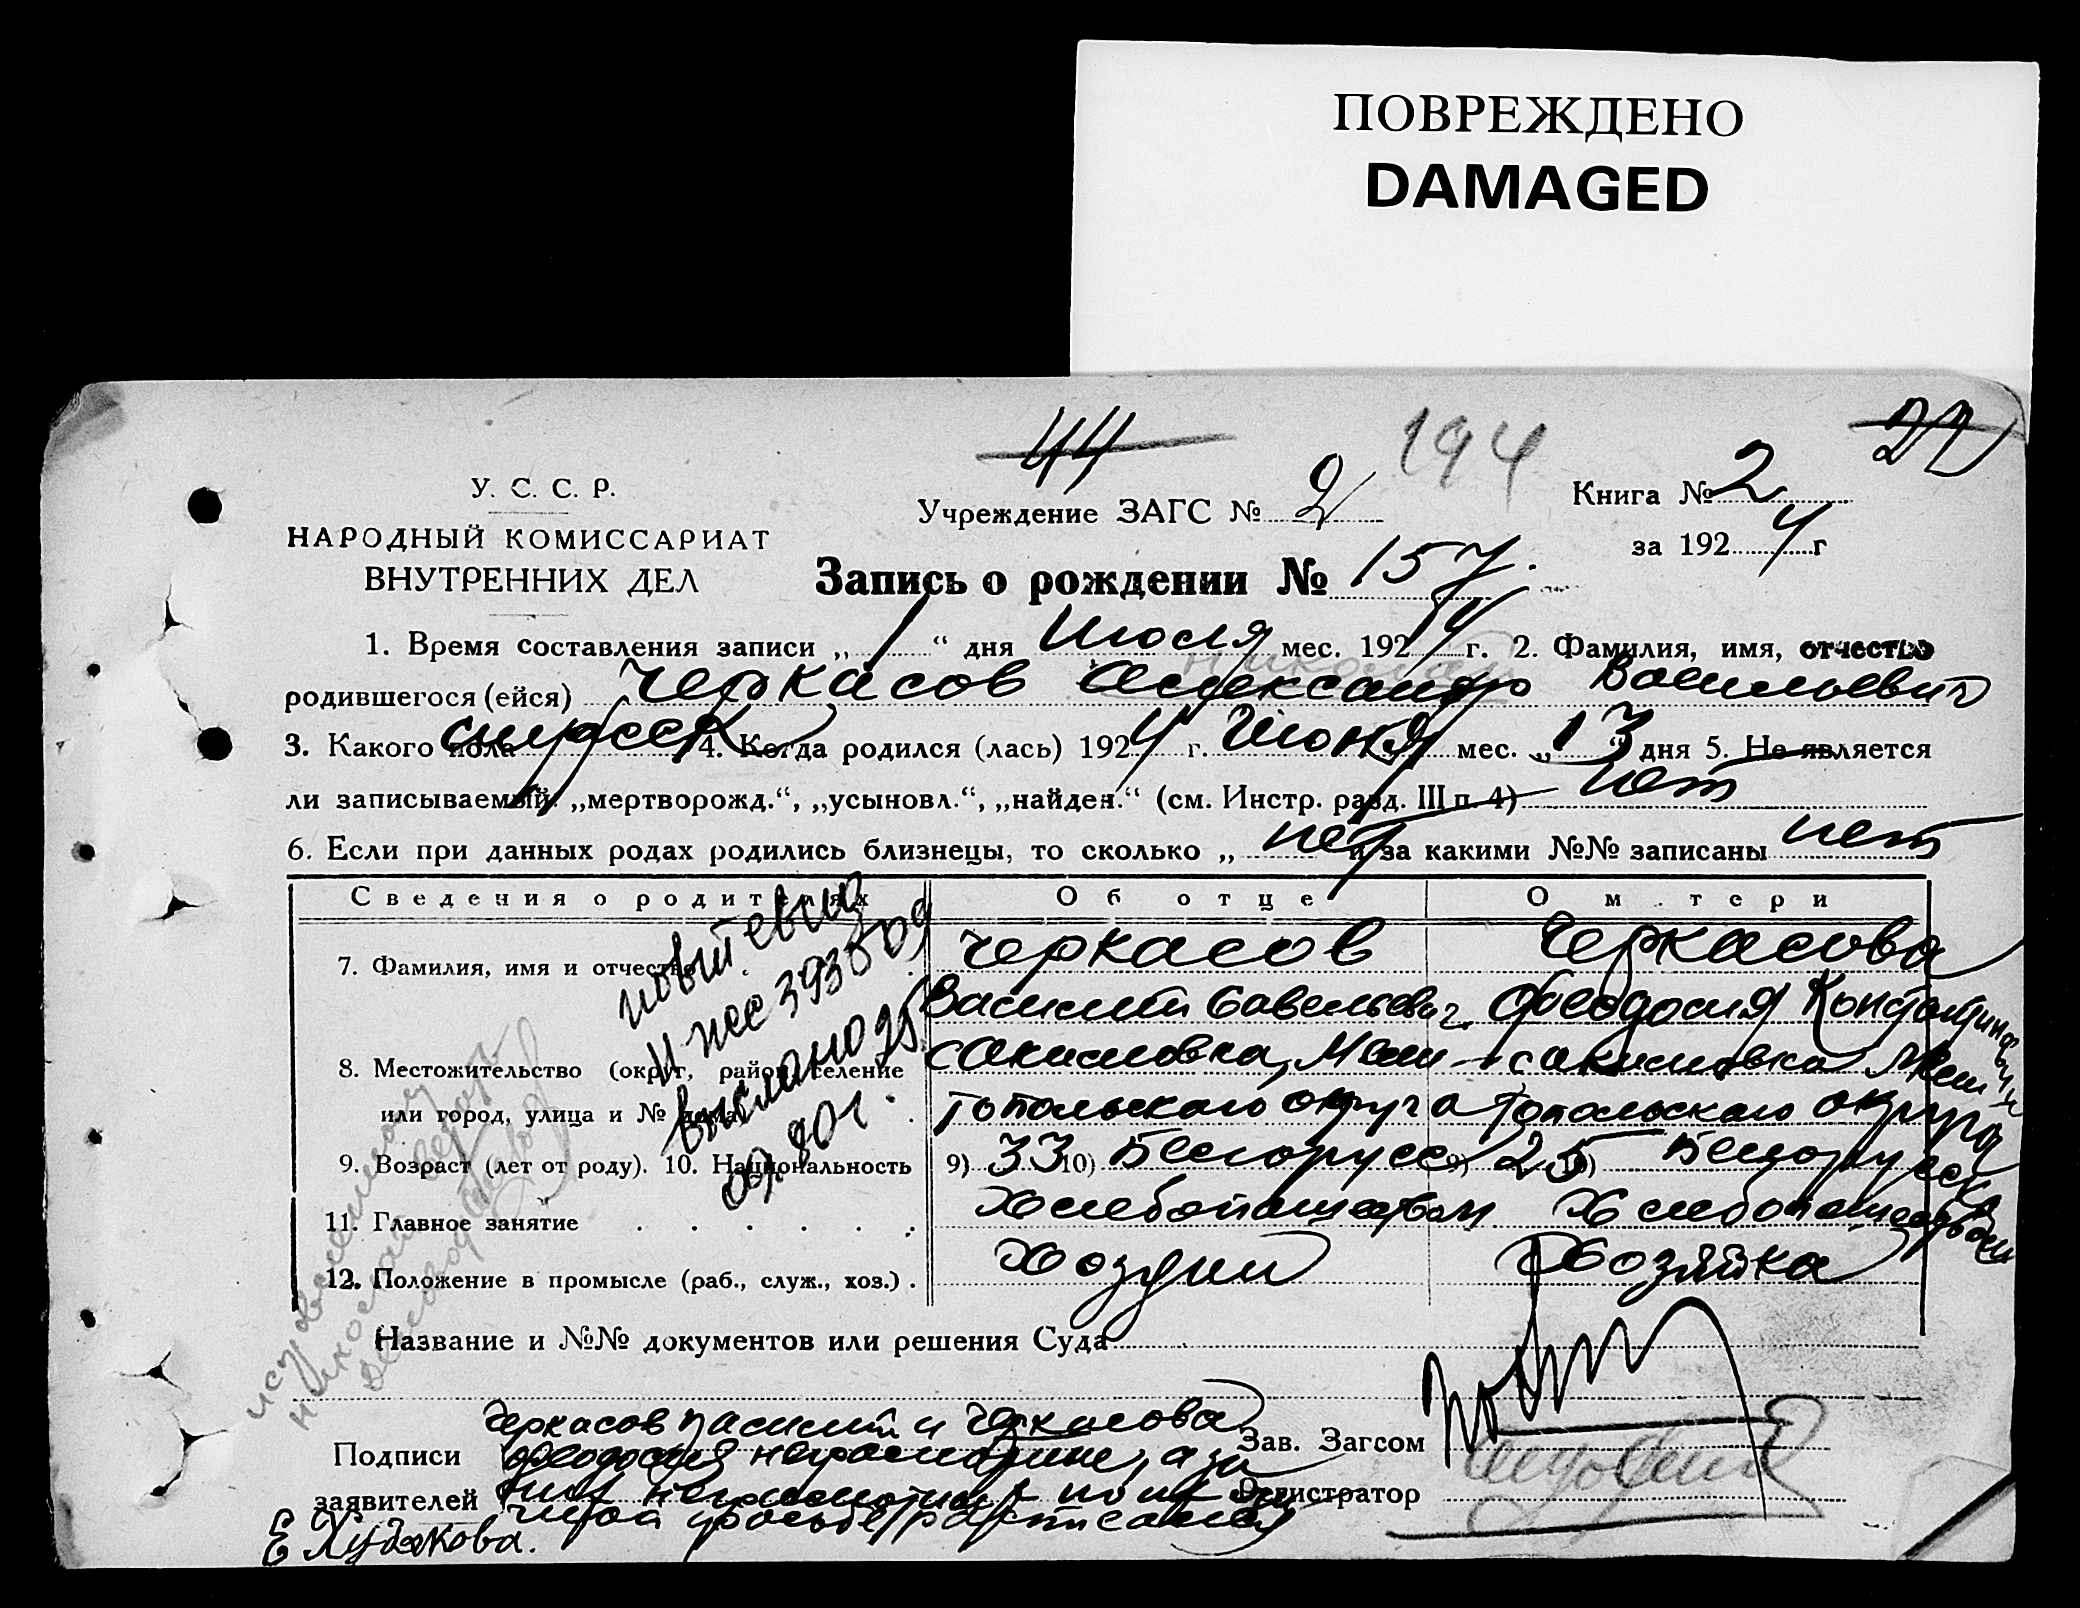 ПОВРЕЖДЕНО
DAMAGED
44
194
22
У. С. С. Р.
НАРОДНЫЙ КОМИССАРИАТ
ВНУТРЕННИХ ДЕЛ
Учреждение ЗАГС № 2
Книга № 2
за 1924 г
Запись о рождении № 157.
1. Время составления записи „1“ дня Июля мес. 1924 г. 2. Фамилия, имя, отчество
николай
родившегося (ейся) Черкасов Александр Васильевич
3. Какого пола мужской 4. Когда родился (лась) 1924 г. Июня мес. „13“ дня 5. Не является
ли записываемый: „мертворожд.“, „усыновл.“, „найден.“ (см. Инстр. разд. III п. 4) нет
6. Если при данных родах родились близнецы, то сколько „ нет и за какими №№ записаны нет
Сведения о родителях Об отце О м . тери
7. Фамилия, имя и отчество Черкасов Черкасова
Василий Савельевич Феодосия Константиновна
8. Местожительство (округ, район, селение с Акимовка, Мели- с Акимовка Мели
или город, улица и № дома) топольского округа топольского округа
9. Возраст (лет от роду). 10. Национальность 9) 33 10) Белорусс 9) 25 10) Белорусска
11. Главное занятие Хлебопашеством Хлебопашеством
12. Положение в промысле (раб., служ., хоз.) Хозяин Хозяйка
новый свид
II ЖС 393509
выслано 25.
09. 80 г.
Название и №№ документов или решения Суда
Подписи Черкасов Василий и Черкасова
Феодосия неграмотные, а за
заявителей них неграмотных по их
просьбе расписалась
Е Худякова.
Зав. Загсом
Регистратор